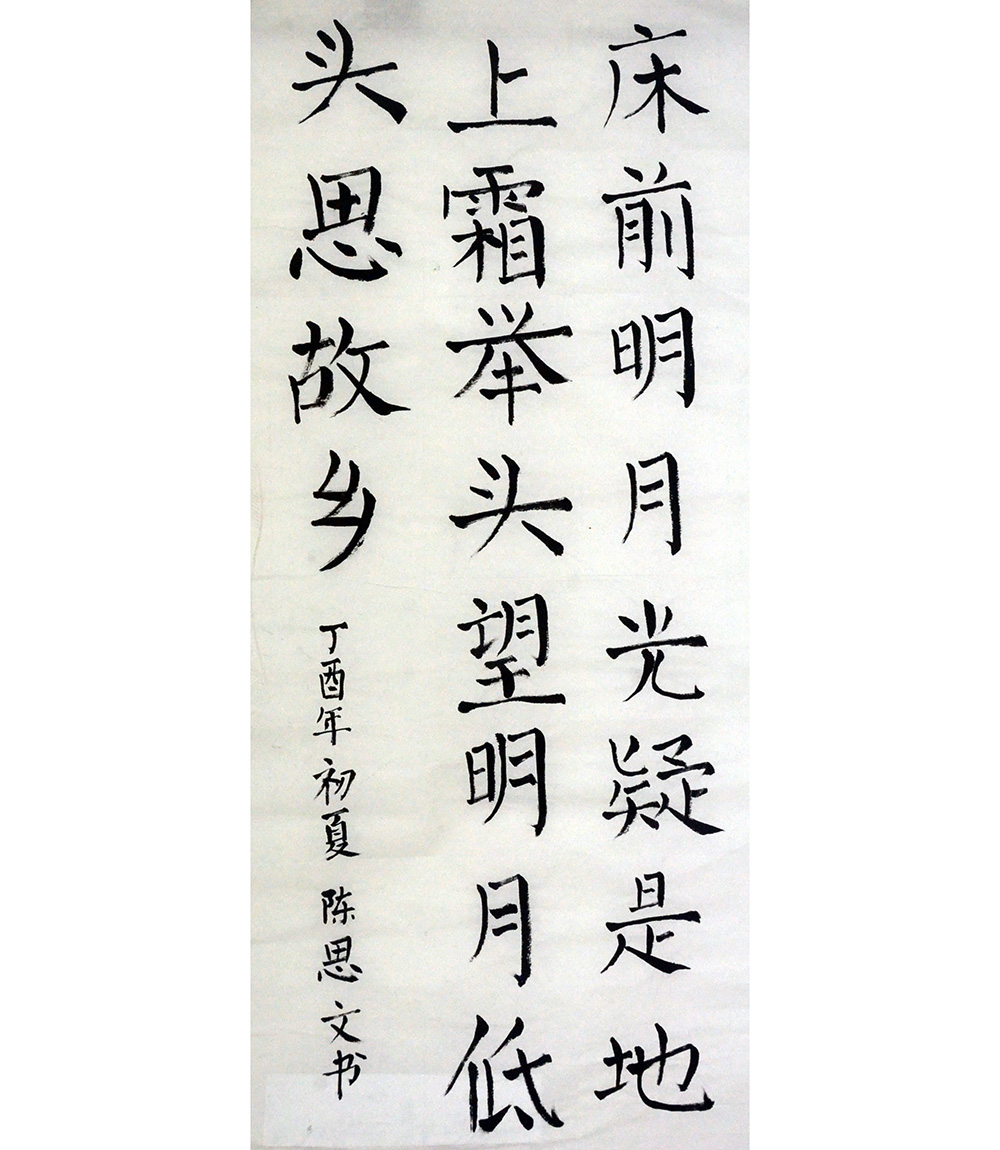 床前明月光疑是地
上霜举头望明月低
头思故乡
丁酉年初夏陈思文书